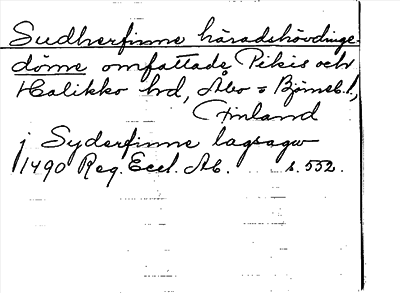 Sudherfinne häradshövdinge
döme omfattade Pikis och
Halikko hd, Åbo o Björneb.l.,
Finland
j Syderfinne lagsagw
1490 Reg. Eccl. Ab. s. 552.